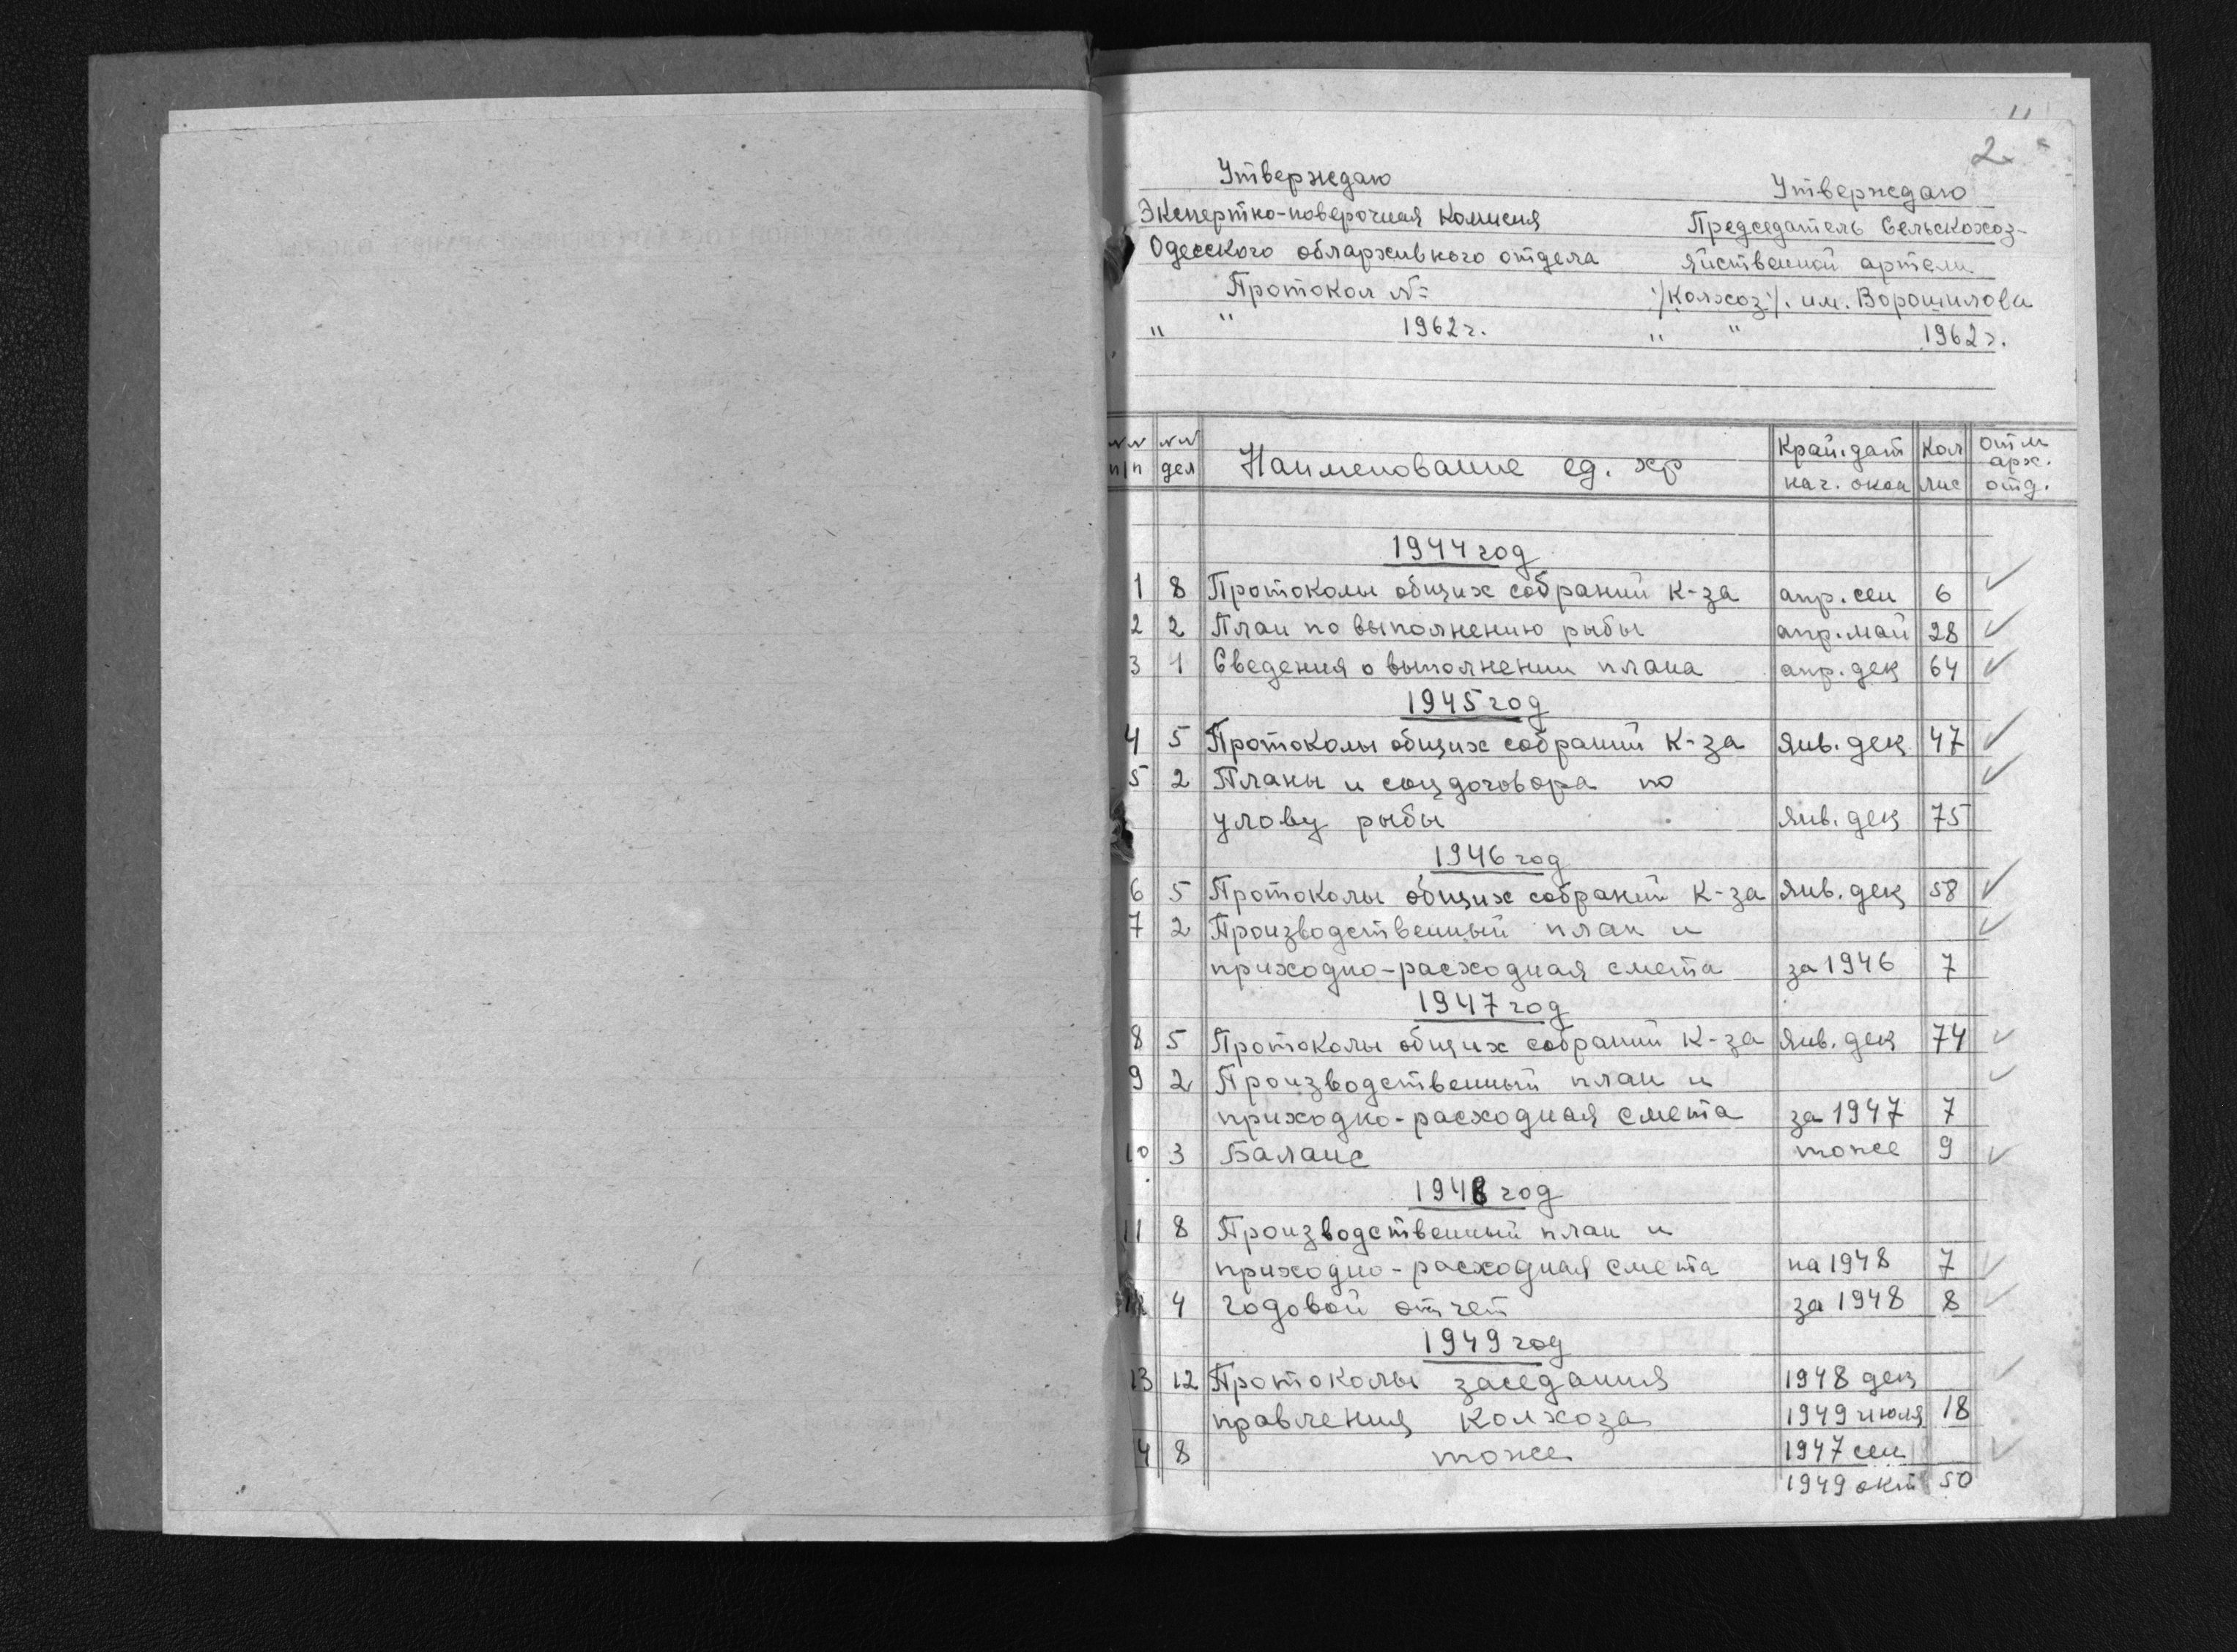 2
Утверждаю
Экспертно-поверочная комисия
Одесского облархивного отдела
Протокол №
" " 1962 г.
Утверждаю
Председатель Сельскохоз-
яйственной артели
/колхоз/. им. Ворошилова
" " 1962 г.
№№ п/п №№ дел Наименование ед. хр Край.дат нач. окон Кол лис отм арх. отд.
1944 год
1 8 Протоколы общих собраний к-за апр. сен 6 ✓
2 2 План по выполнению рыбы апр. май 28 ✓
3 1 Сведения о выполнении плана апр. дек 64 ✓
1945 год
4 5 Протоколы общих собраний к-за янв. дек 47 ✓
5 2 Планы и соцдоговора по ✓
улову рыбы янв. дек 75
1946 год
6 5 Протоколы общих собраний к-за янв. дек 58 ✓
7 2 Производственный план и ✓
приходно-расходная смета за 1946 7
1947 год
8 5 Протоколы общих собраний к-за янв. дек 74 ✓
9 2 Производственный план и ✓
приходно-расходная смета за 1947 7
10 3 Баланс тоже 9 ✓
1948 год
11 8 Производственный план и
приходно-расходная смета на 1948 7 ✓
12 4 годовой отчет за 1948 8 ✓
1949 год
13 12 Протоколы заседания 1948 дек ✓
правления колхоза 1949 июля 18
14 8 тоже 1947 сен ✓
1949 окт 50